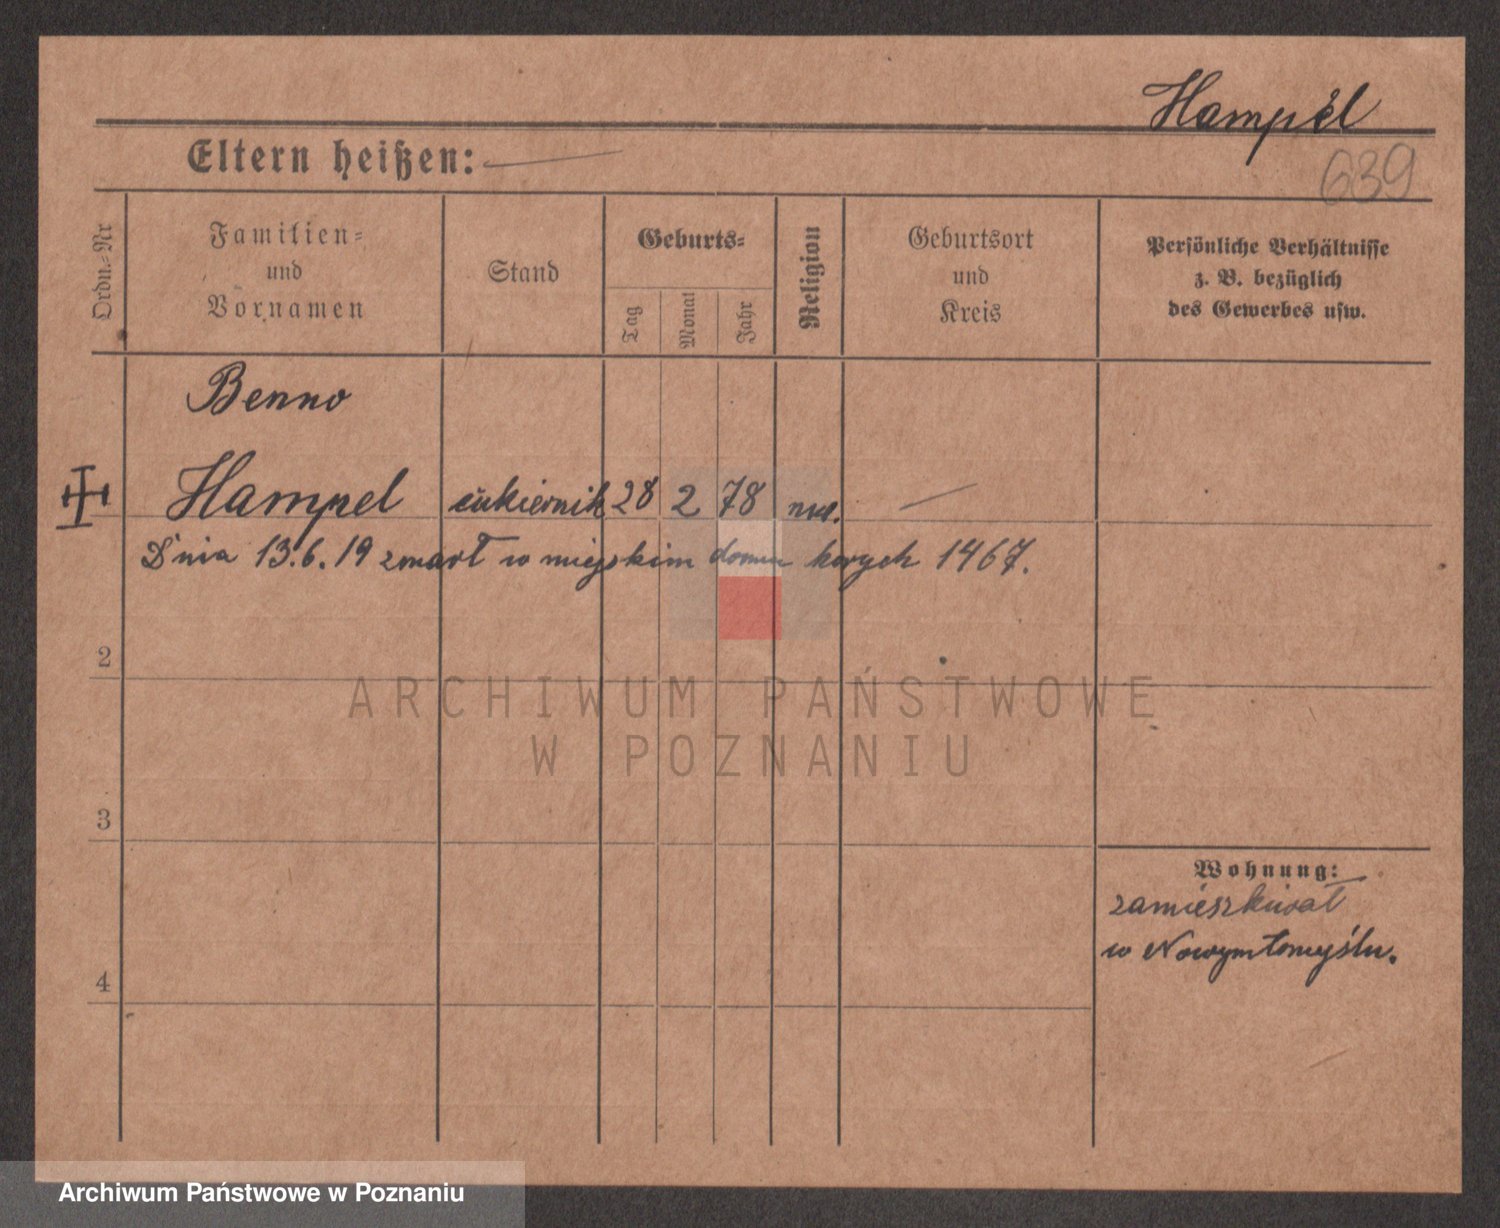 Hampel
Eltern heißen:
639
Ordn.-Nr
Familien-
und
Vornamen
Stand
Geburts-
Tag
Monat
Jahr
Religion
Geburtsort
und
Kreis
Persönliche Verhältnisse
z. B. bezüglich
des Gewerbes usw.
Benno
Hampel cukiernik 28 2 78
D'nia 13.6.19 zmarł w miejskim domu horych 1467.
2
3
4
Wohnung:
zamieszkiwał
w Nowymtomyślu.
ARCHIWUM PAŃSTWOWE
W POZNANIU
Archiwum Państwowe w Poznaniu